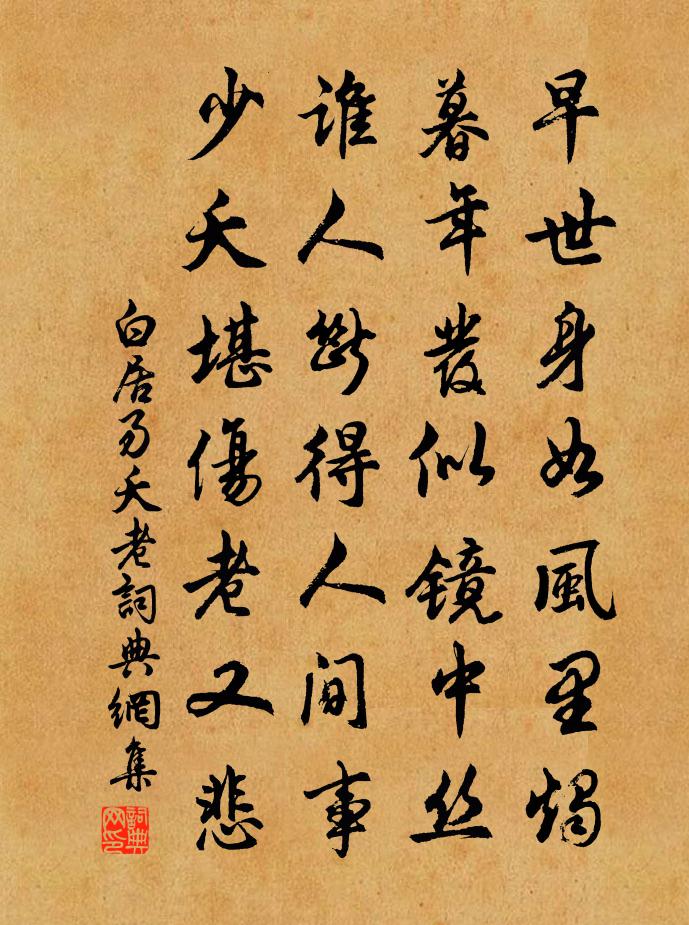 早世身如風里燭
暮年發似鏡中丝
誰人斷得人間事
少夭堪傷老又悲
白居易夭老詞典網集
詞典网印